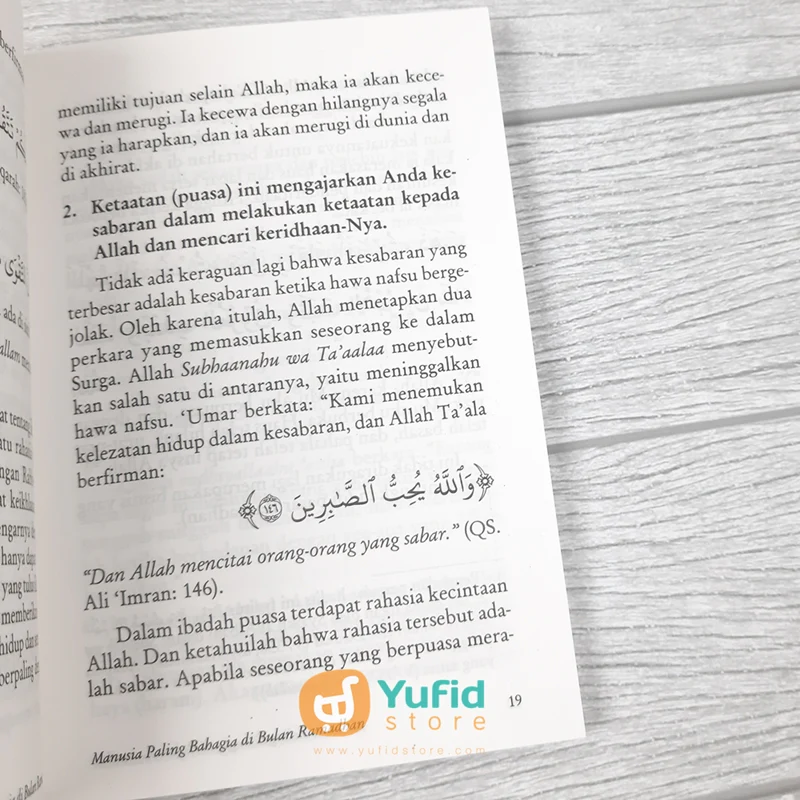 memiliki tujuan selain Allah, maka ia akan kece-
wa dan merugi. Ia kecewa dengan hilangnya segala
yang ia harapkan, dan ia akan merugi di dunia dan
di akhirat.
2. Ketaatan (puasa) ini mengajarkan Anda ke-
sabaran dalam melakukan ketaatan kepada
Allah dan mencari keridhaan-Nya.
Tidak ada keraguan lagi bahwa kesabaran yang
terbesar adalah kesabaran ketika hawa nafsu berge-
jolak. Oleh karena itulah, Allah menetapkan dua
perkara yang memasukkan seseorang ke dalam
Surga. Allah Subhaanahu wa Ta’aalaa menyebut-
kan salah satu di antaranya, yaitu meninggalkan
hawa nafsu. ‘Umar berkata: “Kami menemukan
kelezatan hidup dalam kesabaran, dan Allah Ta’ala
berfirman:
﴿وَٱللَّهُ يُحِبُّ ٱلصَّـٰبِرِينَ ١٤٦﴾
“Dan Allah mencitai orang-orang yang sabar.” (QS.
Ali ‘Imran: 146).
Dalam ibadah puasa terdapat rahasia kecintaan
Allah. Dan ketahuilah bahwa rahasia tersebut ada-
lah sabar. Apabila seseorang yang berpuasa mera-
19
Manusia Paling Bahagia di Bulan Ramadhan
Yufid
store
www.yufidstore.com